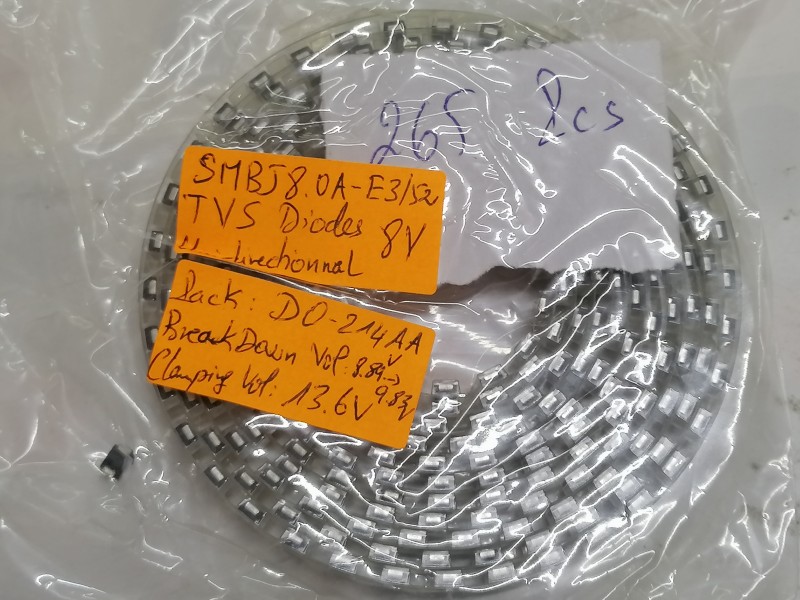 265 Pcs
SMBJ8.0A-E3/52
TVS Diodes 8V
Pack: DO-214AA
BreakDown Vol: 8.89V→
9.83V
Clamping Vol: 13.6V